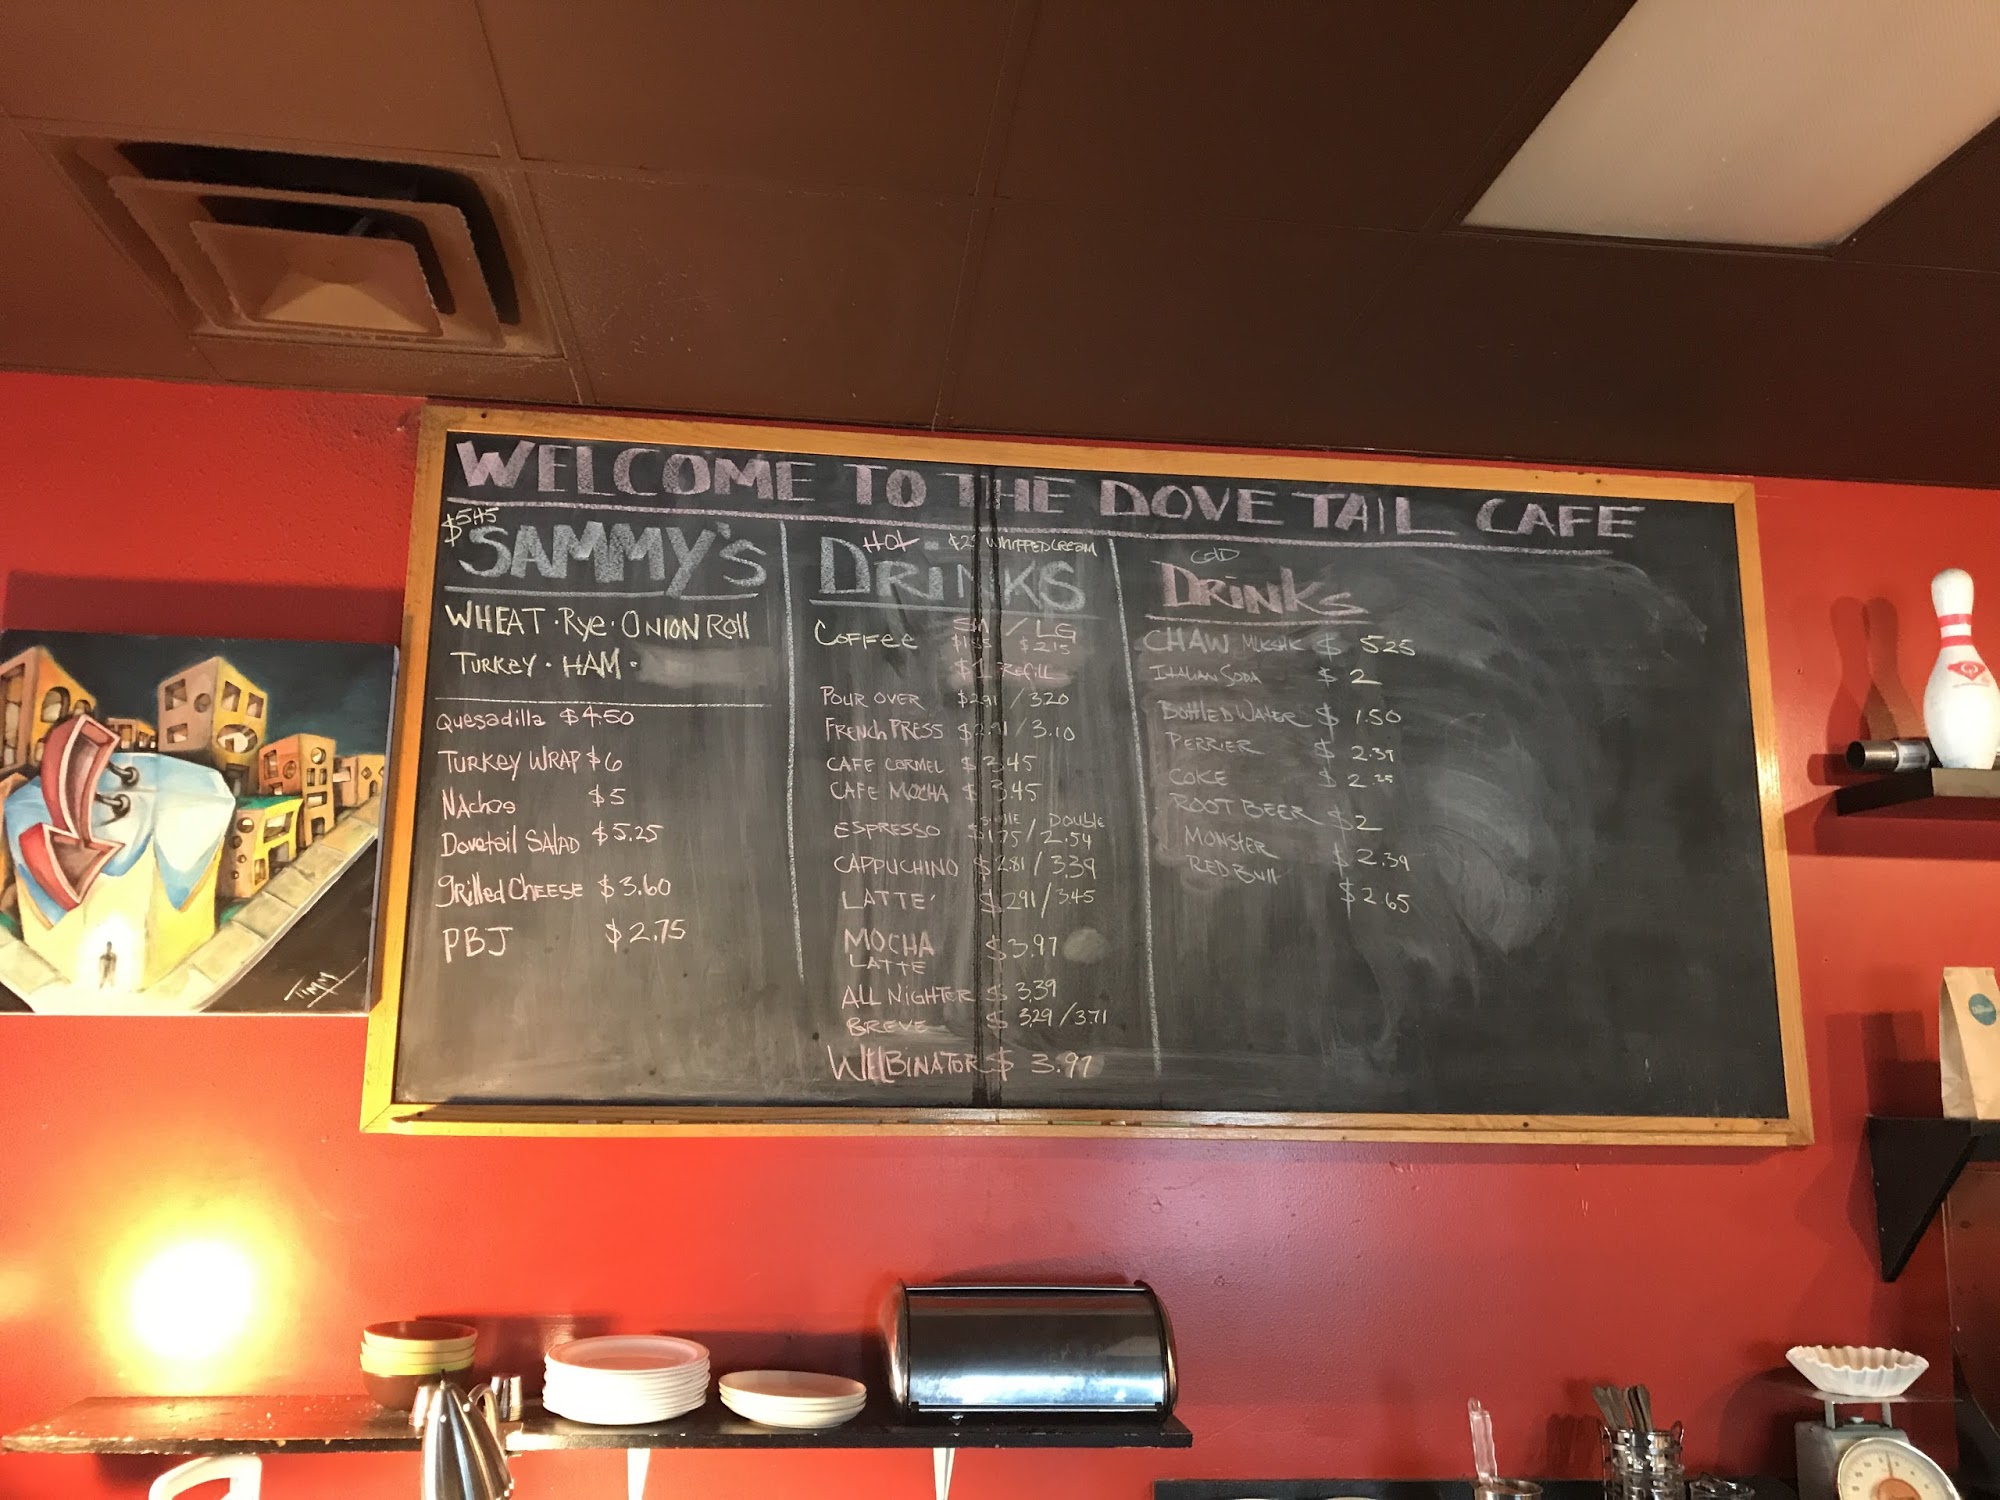 WELCOME TO THE DOVE TAIL CAFE
$5.45
SAMMY'S
WHEAT · Rye · ONION Roll
TURKEY · HAM ·
Quesadilla $4.50
TURKEY WRAP $6
NAchos $5
Dovetail SALAD $5.25
grilled CHEESE $3.60
PBJ $2.75
HOT WHIPPED CREAM
DRINKS
COFFEE SM / LG
$2.15
$1 Refill
POUR OVER $2.91 / 3.20
FRENCH PRESS $2.91 / 3.10
CAFE CARMEL $3.45
CAFE MOCHA $3.45
DOUBLE
ESPRESSO $1.75 / 2.54
CAPPUCHINO $2.81 / 3.39
LATTE' $2.91 / 3.45
MOCHA $3.97
LATTE
ALL NIGHTER $3.39
BREVE $3.29 / 3.71
WELBINATOR $3.97
COLD
DRINKS
CHAW $5.25
ITALIAN SODA $2
BOTTLED WATER $1.50
PERRIER $2.39
COKE $2.25
ROOT BEER $2
MONSTER $2.39
RED BUll $2.65
TIMM